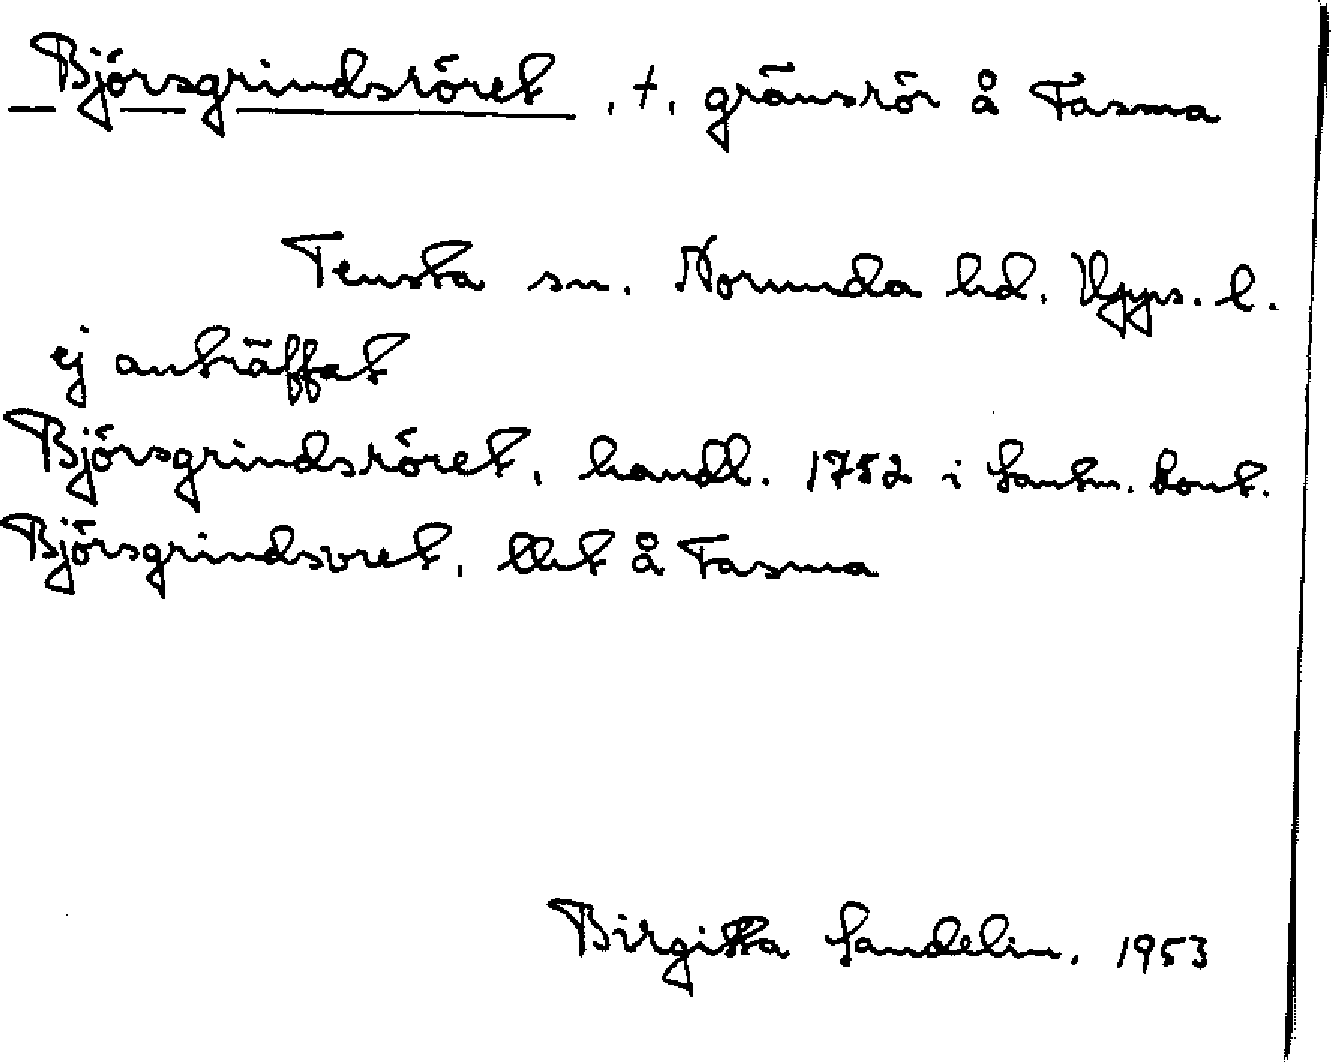 Björsgrindsröret, †, gränsrör å Fasma
Tensta sn. Norunda hd. Upps. l.
ej anträffat
Björsgrindsröret, handl. 1752 i Lantm. kont.
Björsgrindsvret, å Fasma
Birgitta Sandelin. 1953